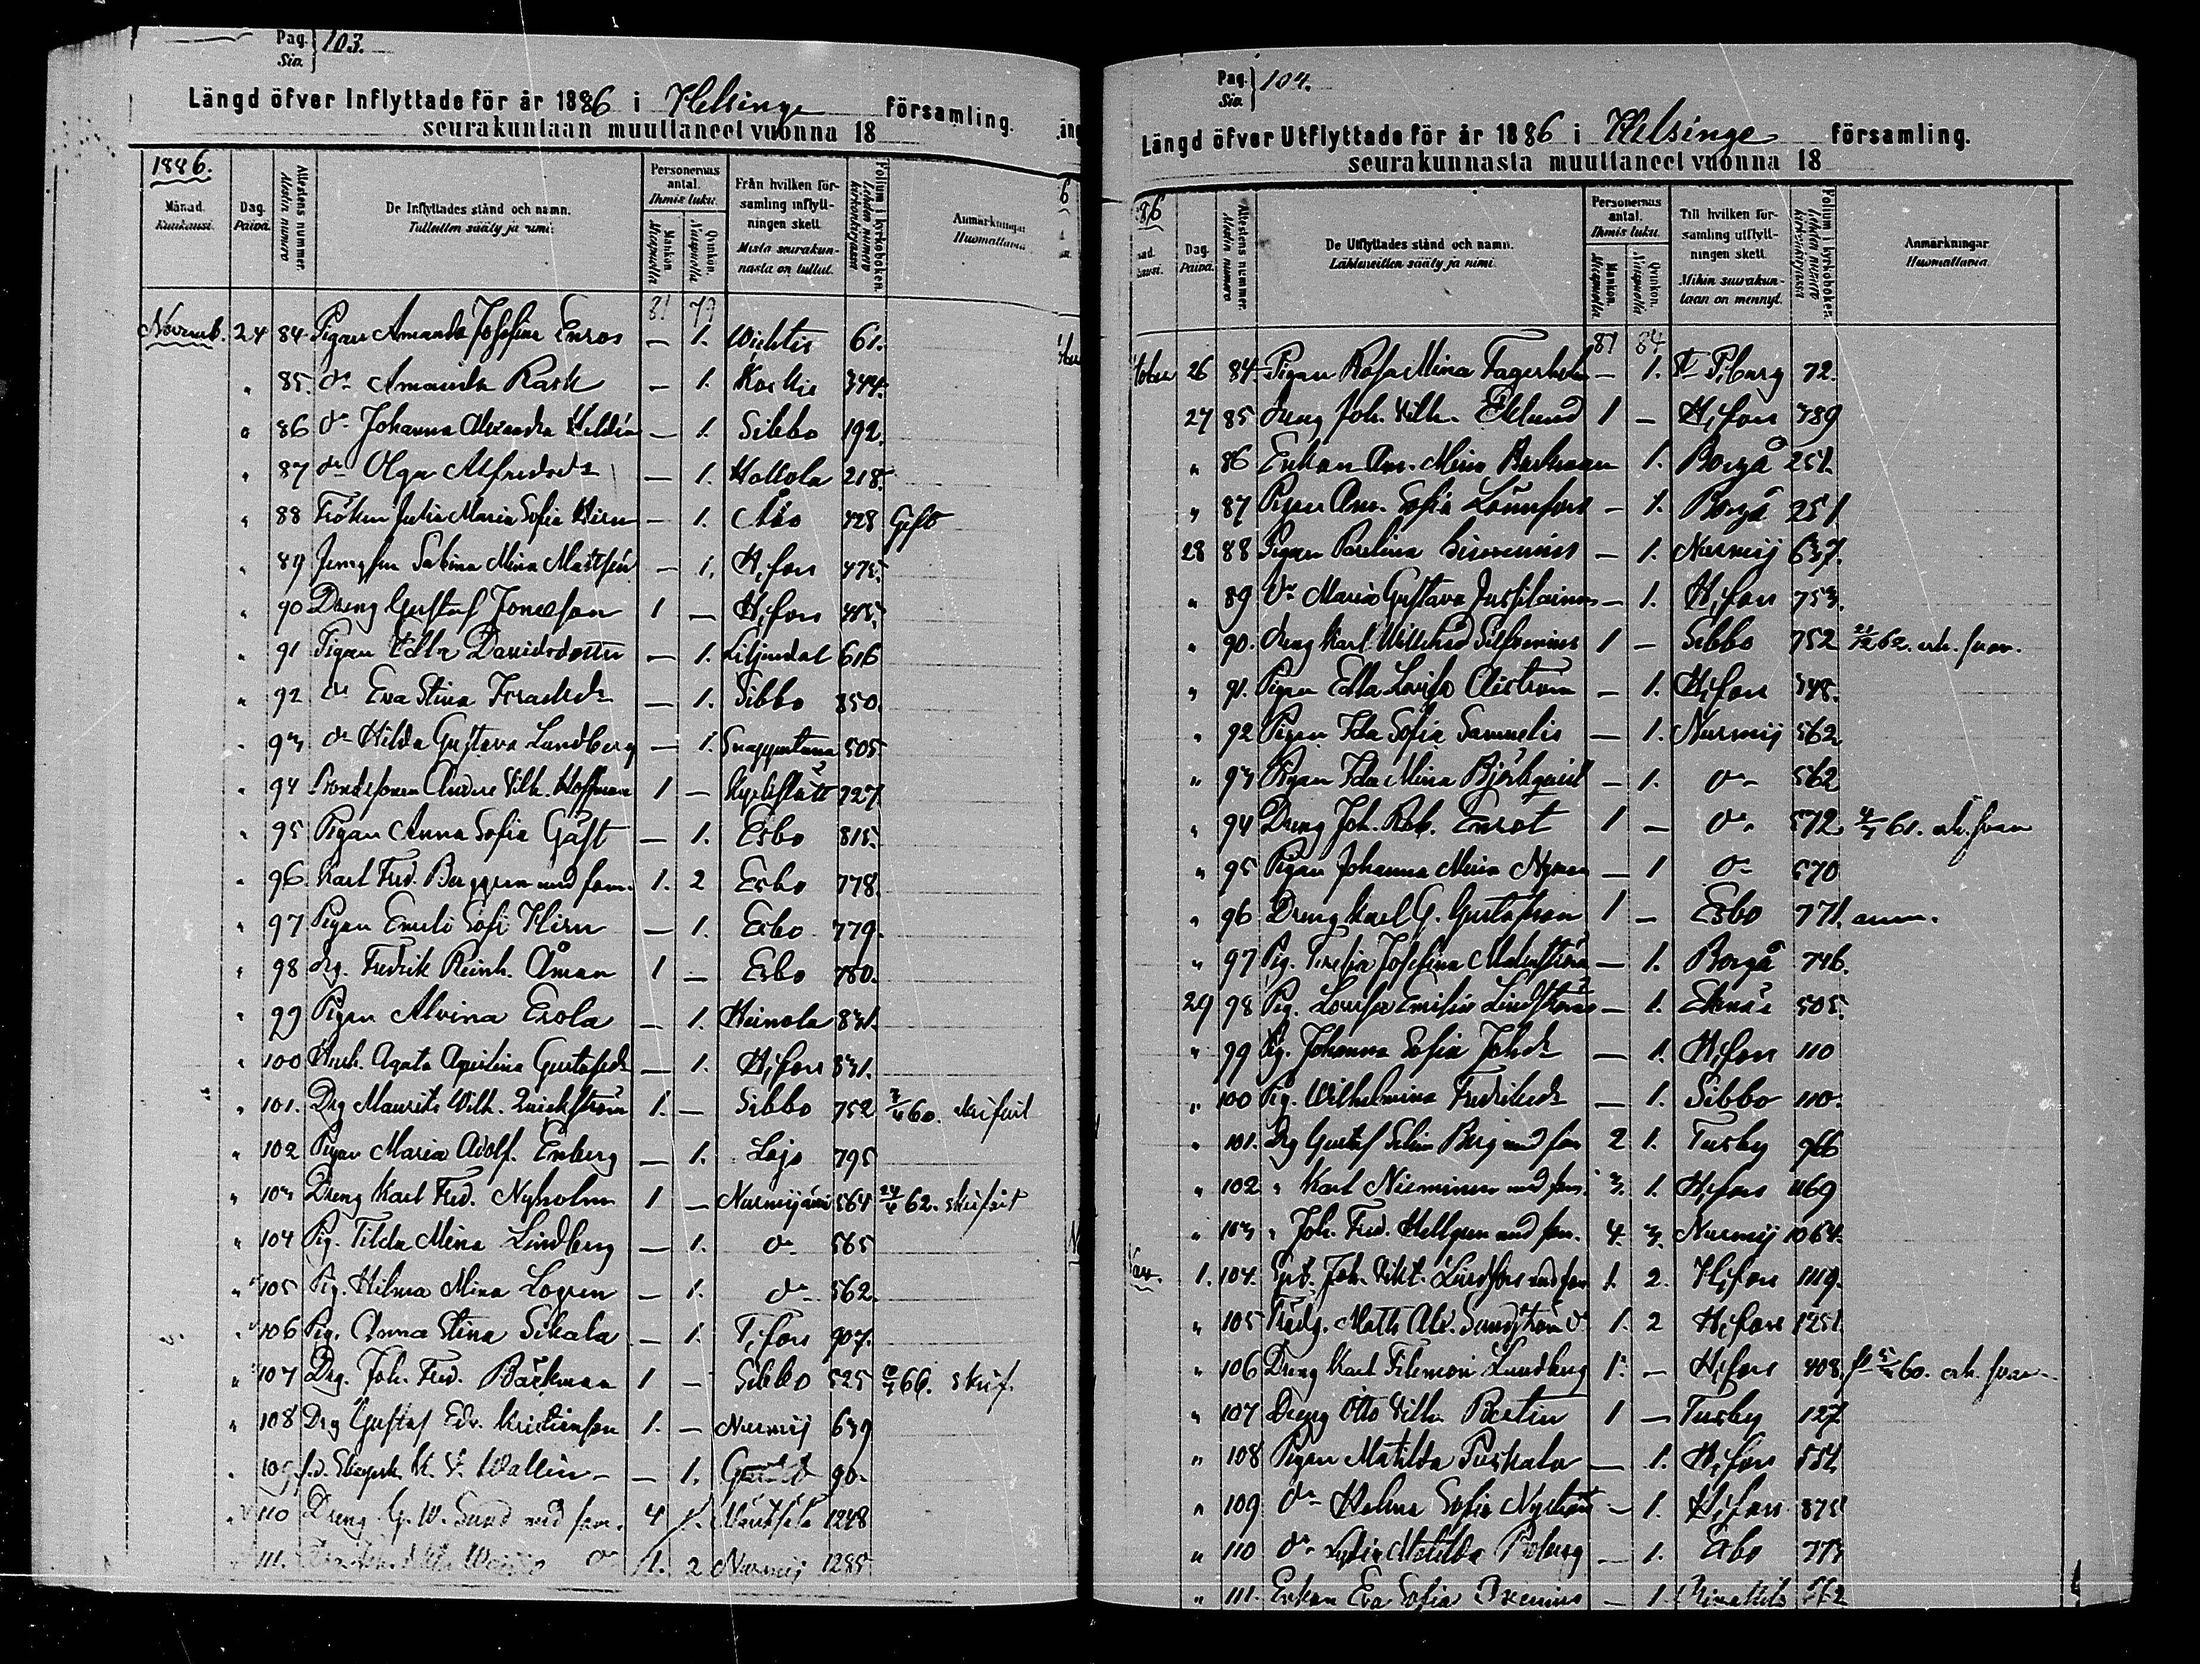 Pag. 103.
Siv.
Längd öfver Inflyttade för år 1886 i Helsinge församling.
seurakuntaan muuttaneet vuonna 18
1886.
Månad. Kuukausi.
Dag. Päivä.
Attestens nummer. Atestin numero
De Inflyttades stånd och namn.
Tulleitten sääty ja nimi.
Personernas antal.
Ihmis luku.
Mankön. Miespuolia
Qvinkön. Naispuolia
Från hvilken församling inflyttningen skett.
Mistä seurakunnasta on tullut.
Folium i kyrkoboken.
Lehden numero kirkonkirjassa
Anmärkningar
Huomattavia
81 79
Novemb. 24 84 Pigan Amanda Josefina Enros — 1. Wichtis 61.
" 85. do Amanda Rask — 1. Koskis 344.
" 86 do Johanna Alexandra — 1. Sibbo 192.
" 87 do Olga Alfredsdr — 1. Hollola 218.
" 88 Fröken Julia Maria Sofia Hirn — 1. Åbo 428 Gift
" 89 Jungfru Sabina Mina — 1. H,fors 475.
" 90 Dreng Gustaf Jonasson 1 — H,fors
" 91 Pigan Edla Davidsdotter — 1. Liljendal 616
" 92 do Eva Stina — 1. Sibbo 850.
" 93 do Hilda Gustava Lundberg — 1. Snappertuna 505
" 94 Anders Vilh. Hoffman 1 — Kyrkslätt 727
" 95 Pigan Anna Sofia Gäst — 1. Esbo 815.
" 96 Karl Fred. Berggren med fam. 1. 2 Esbo 778.
" 97 Pigan Emili Sofi Hirn — 1. Esbo 779.
" 98 drg. Fredrik Reinh. Åman 1 — Esbo 780.
" 99 Pigan Alvina Erola — 1. Heinola 831.
" 100 Agata Gustafsdr — 1. H,fors 831.
" 101. Drg Maurits Wilh. Quickström 1. — Sibbo 752
" 102 Pigan Maria Adolf. Enberg — 1. Lojo 795
" 103 Dreng Karl Fred. Nyholm 1 — Nurmijärvi 564
" 104 Pig. Tilda Mina Lindberg — 1. do 565
" 105 Pig. Hilma Mina Logren — 1. do 562.
" 106 Pig. Anna Stina Sikala — 1. T,fors 907.
" 107 Drg. Joh. Fred. Bäckman 1 — Sibbo 525
" 108 Drg Gustaf Edv. Kristiansson 1. — Nurmij 639
" 109 K. F. Wallin — — 1. 90.
" 110 Dreng G. W. Sund med fam. 4 1. Mäntsälä 1248
" 111. do 1. 2 Nurmij 1285
Pag. 104.
Siv.
Längd öfver Utflyttade för år 1886 i Helsinge församling.
seurakunnasta muuttaneet vuonna 18
86
Dag. Päivä.
Attestens nummer. Atestin numero
De Utflyttades stånd och namn.
Lähteneitten sääty ja nimi.
Personernas antal.
Ihmis luku.
Mankön. Miespuolia
Qvinkön. Naispuolia
Till hvilken församling utflyttningen skett.
Mihin seurakuntaan on mennyt.
Folium i kyrkoboken.
Lehden numero kirkonkirjassa
Anmärkningar.
Huomattavia.
81 84
tober 26 84 Pigan Rosa Mina Fagerholm — 1. St P,burg 72.
27 85 dreng Joh. Vilh. Eklund 1 — H,fors 389
" 86 Enkan An. Mina Backman 1. Borgå 251.
" 87 Pigan Ann. Sofia Lönnfors — 1. Borgå 251
28 88 Pigan Paulina — 1. Nurmij 637.
" 89 do Maria Gustava Jussilainen — 1. H,fors 753.
" 90. dreng Karl 1 — Sibbo 752
" 91. Pigan Edla Lovisa — 1. H,fors 348.
" 92 Pigan Ida Sofia Samuelis — 1. Nurmij 562
" 93 Pigan Ida Mina Björkqvist — 1. do 562
" 94 Dreng Joh. Rob. Enrot 1 — do 572
" 95 Pigan Johanna Mina Nyman — 1 do 570
" 96 Dreng Karl G. Gustafsson 1 — Esbo 771. anm.
" 97 Pig. Josefina Malmström — 1. Borgå 746.
29 98 Pig. Lovisa Emilia Lindström — 1. Ekenäs 505.
" 99 Pig. Johanna Sofia Johdr — 1. H,fors 110
" 100 Pig. Wilhelmina Fredriksdr — 1. Sibbo 110.
" 101. Drg Gustaf Selim Berg med fam 2 1. Tusby 966
" 102 " Karl Nieminen med fam. 3. 1. H,fors 1169
" 103 " Joh. Fred. Hellgren med fam. 4. 3. Nurmij 1064.
Nov. 1. 104. Joh. Vikt. Lindfors med fam 1. 2. H,fors 1119.
" 105 Matts Alx. Sundström do 1. 2 H,fors 1251.
" 106 Dreng Karl Filemon Lundberg 1. — H,fors 408.
" 107 Dreng Otto Vilh. 1 — Tusby 127
" 108 Pigan Matilda Puskala — 1. H,fors 551.
" 109 do Helma Sofia Nyström — 1. H,fors 875
" 110 do Lydia Matilda Boberg — 1. 773
" 111. Enkan Eva Sofia — 1. Kimittö